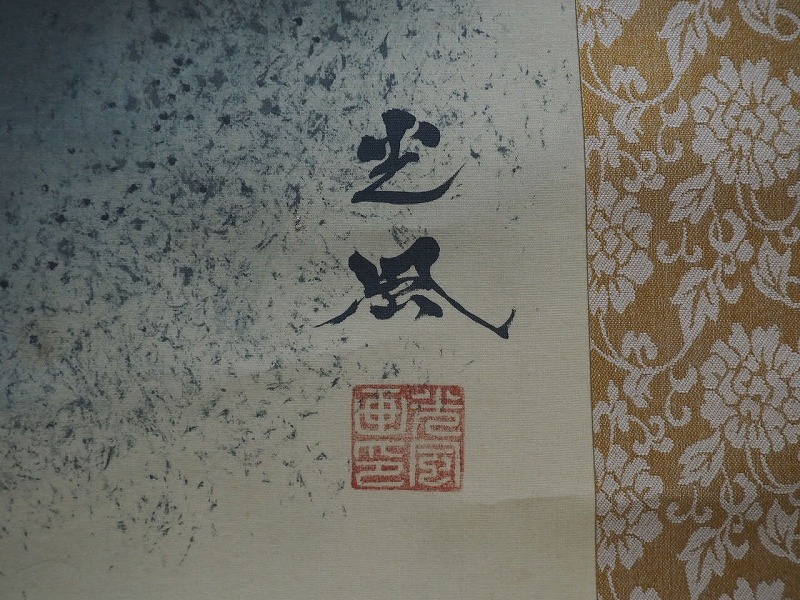 光
風
光風
画印